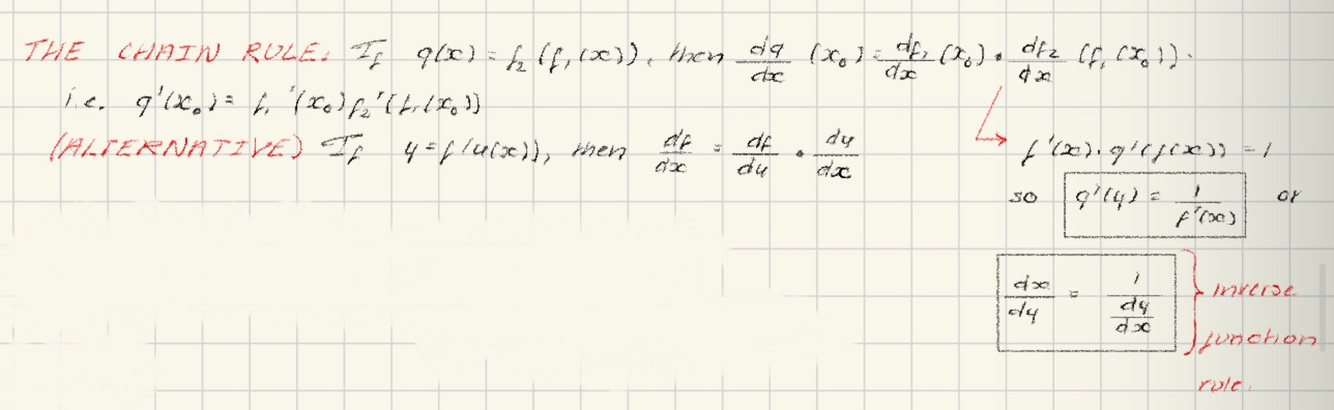 THE CHAIN RULE: If g(x) = f₂(f₁(x)), then dg/dx (x₀) = df₁/dx (x₀) · df₂/dx (f₁(x₀)).
i.e. g'(x₀) = f₁'(x₀) f₂'(f₁(x₀))
(ALTERNATIVE) If y = f(u(x)), then df/dx = df/du · du/dx
f'(x) · g'(f(x)) = 1
so g'(y) = 1/f'(x) or
dx/dy = 1/(dy/dx)
inverse
function
rule.